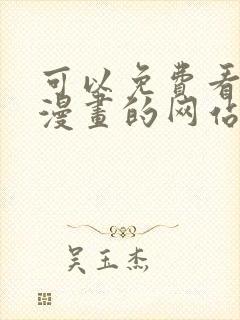 可以免费看
漫畫的网站
吴玉杰